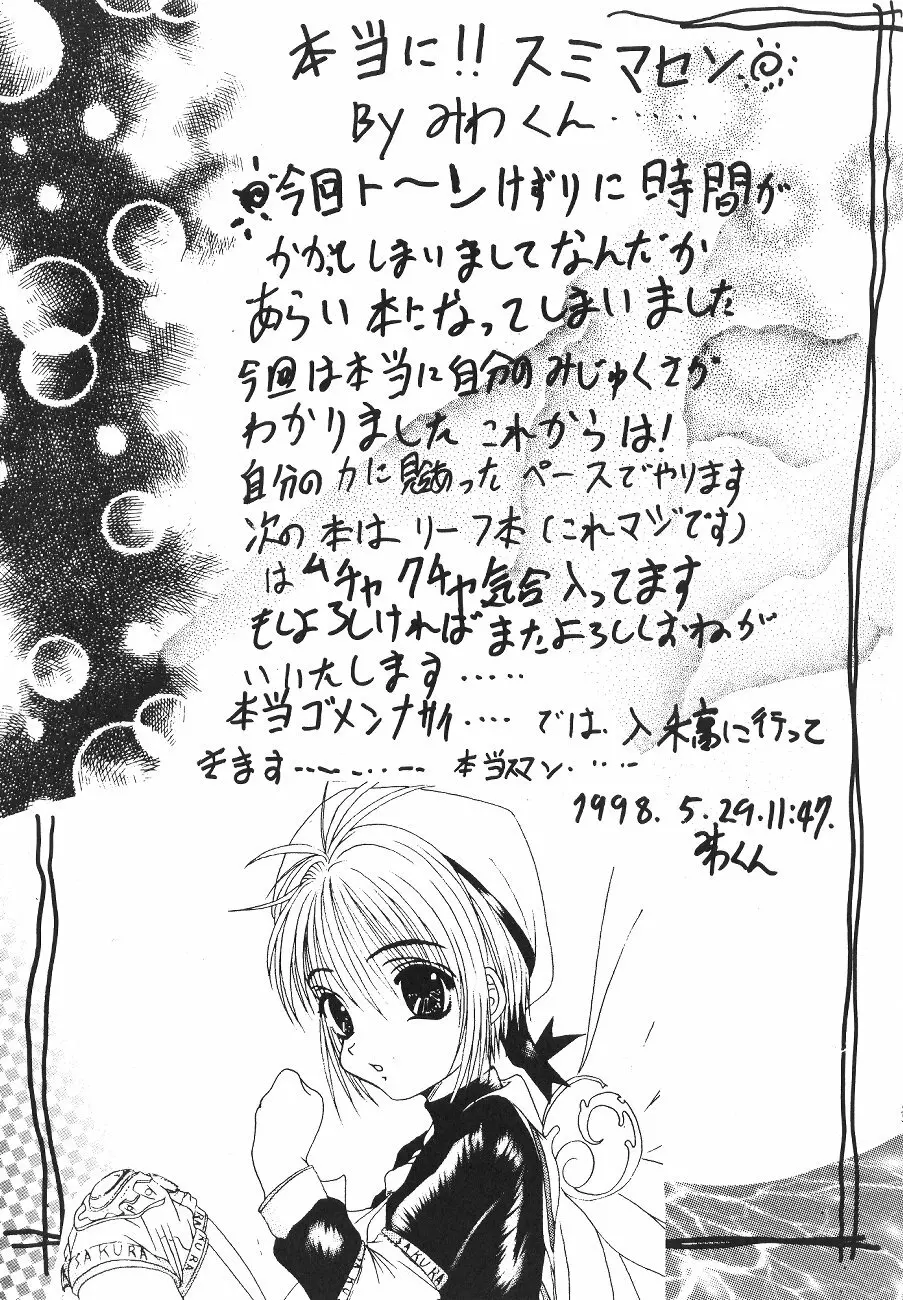 本当に!! スミマセン
By みわくん……
今回ト〜ンけずりに時間が
かかってしまいましてなんだか
あらい本になってしまいました
今回は本当に自分のみじゅくさが
わかりました これからは!
自分の力に見あった ペースでやります
次の本は リーフ本(これマジです)
はムチャクチャ気合入ってます
もしよろしければまたよろしくおねが
いいたします ‥‥‥
本当ゴメンナサイ‥‥ では 入稿に行って
きます…………… 本当スマン‥‥‥
1998. 5. 29. 11:47.
みわくん
SAKURA
RA
KURA
SAKURA